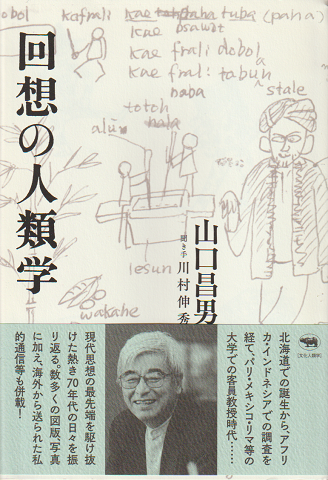 obol kafrali kae tuba (paha)
kae osawot
kae frali dobol
kae frali tabuh
baba
stale
totoh
alu
lesun
wakahe
回想の人類学
山口昌男
聞き手 川村伸秀
北海道での誕生から、アフリ
カ・インドネシアでの調査を
経て、パリ・メキシコ・リマ等の
大学での客員教授時代……
現代思想の最先端を駆け抜
けた熱き70年代の日々を振
り返る。数多くの図版、写真
に加え、海外から送られた私
的通信等も併載!
[文化人類学]